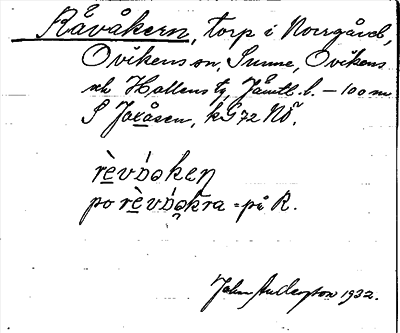 Råvåkern, torp i Norrgård,
Ovikens sn, Sunne, Ovikens
och Hallens tg, Jämtl. l. – 100 m
S Jaråsen, kG 72 NÖ
rèvə́ɷken
po rèvə́ɷkra = på R.
John Anderzon 1932.